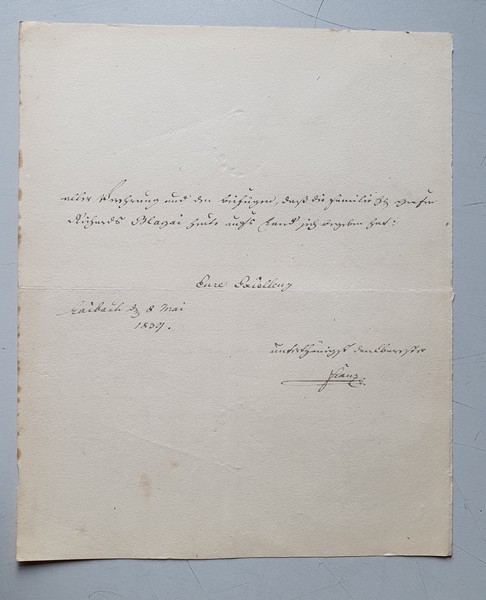 aller Verehrung und den beifügen, daß die Familie des Grafen
Richards Blagai heute auf's Land sich begeben hat:
Eure Excellenz
Laibach d 8 Mai
1839.
unterthänigst
Franz